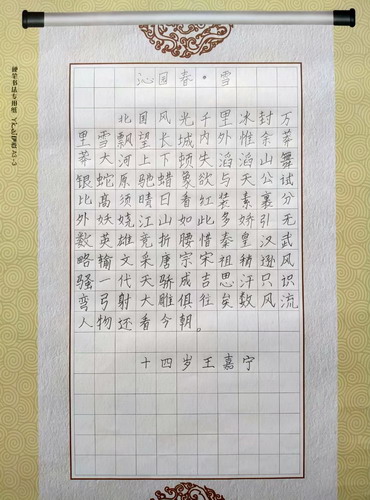 沁国春·雪
北国风光千里冰封万
里雪飘望长城内外惟余莽
莽大河上下顿失滔滔山舞
银蛇原驰蜡象欲与天公试
比高须晴日看红装素裹分
外妖娆江山如此多娇引无
数英雄竞折腰惜秦皇汉武
略输文采唐宗宋祖稍逊风
骚一代天骄成吉思汗只识
弯弓射大雕俱往矣数风流
人物还看今朝。
十四岁王嘉宁